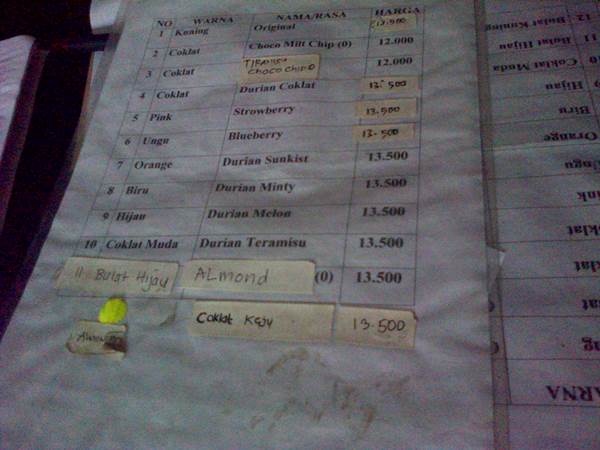 NO WARNA NAMA/RASA HARGA
1 Kuning Original 13.500
2 Coklat Choco Milt Chip (0) 12.000
3 Coklat TIRAMISU CHOCO CHIP 12.000
4 Coklat Durian Coklat 13.500
5 Pink Strowberry 13.500
6 Ungu Blueberry 13.500
7 Orange Durian Sunkist 13.500
8 Biru Durian Minty 13.500
9 Hijau Durian Melon 13.500
10 Coklat Muda Durian Teramisu 13.500
11 Bulat Hijau ALMOND (0) 13.500
Coklat Keju 13.500
12 Bulat Kuning
11 Bulat Hijau
10 Coklat Muda
Hijau
Biru
Orange